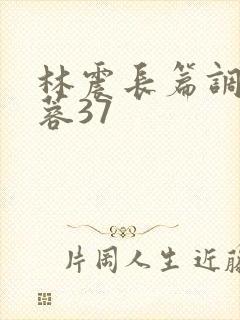 林震長篇調
蓉37
片岡人生近藤